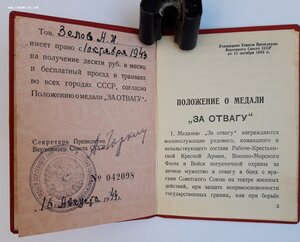 Тов. Зелов А. И.
имеет право с 1 октября 1943
на получение десяти руб. в месяц
и бесплатный проезд в трамваях
во всех городах СССР, согласно
Положению о медали „ЗА ОТВАГУ“.
Секретарь Президиума
Верховного Совета СССР
Горкин
№ 042098
16 августа
Утверждено Указом Президиума
Верховного Совета СССР
от 17 октября 1938 г.
ПОЛОЖЕНИЕ О МЕДАЛИ
„ЗА ОТВАГУ“
1. Медалью „За отвагу“ награждаются
военнослужащие рядового, командного и
начальствующего состава Рабоче-Крестьян-
ской Красной Армии, Военно-Морского
Флота и Войск пограничной охраны за
личное мужество и отвагу в боях с вра-
гами Советского Союза на театре военных
действий, при защите неприкосновенности
государственных границ, или при борьбе
3